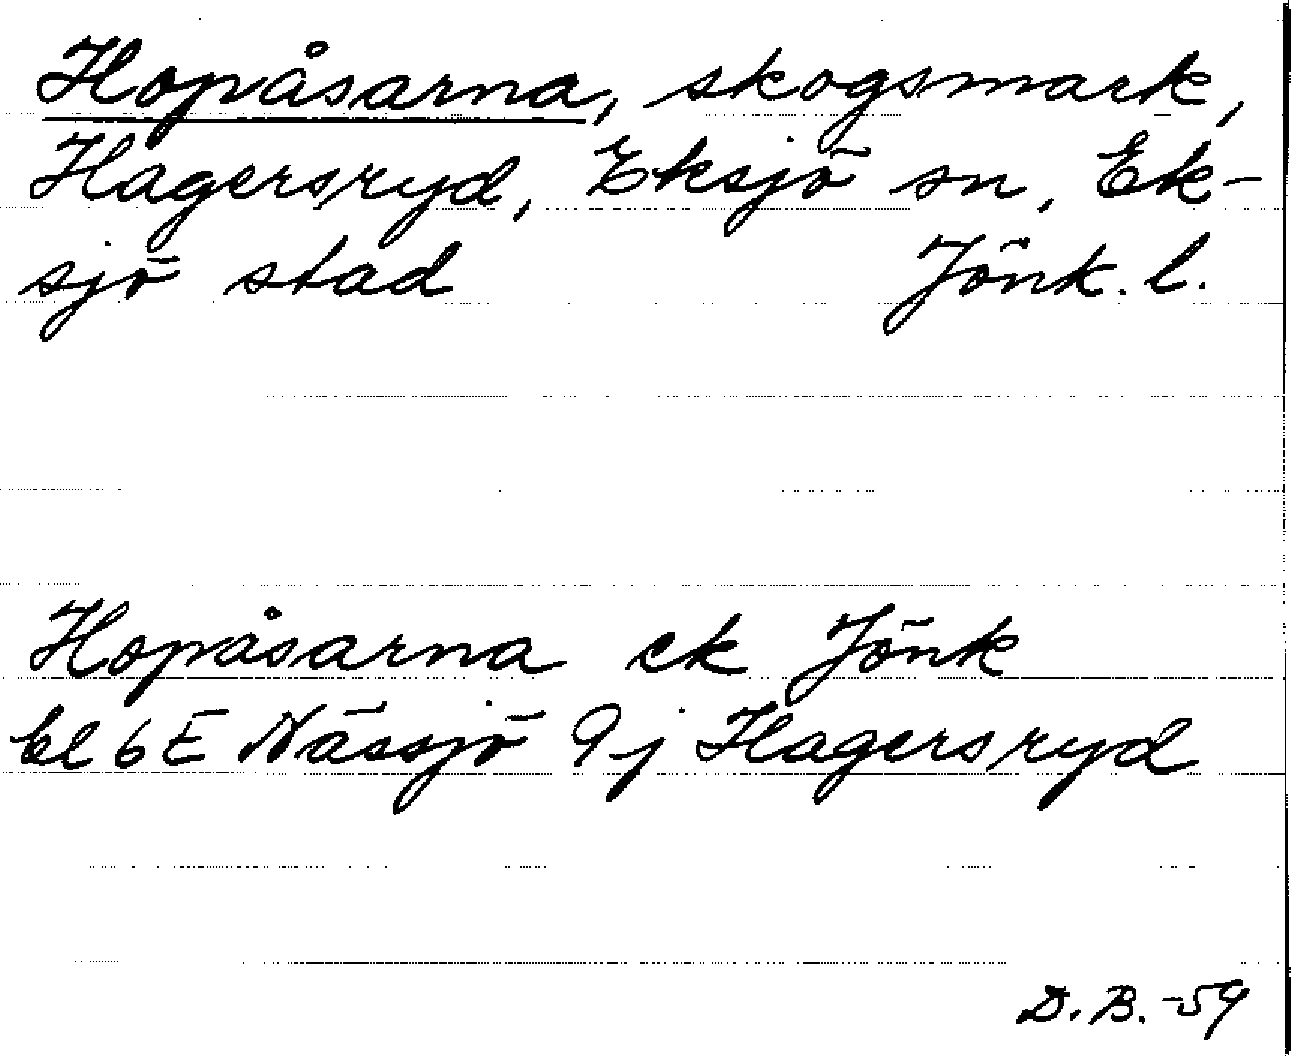 Hopåsarna, skogsmark,
Hagersryd, Eksjö sn, Ek-
sjö stad Jönk. l.
Hopåsarna ek Jönk
bl 6E Nässjö 9j Hagersryd
D.B. -59